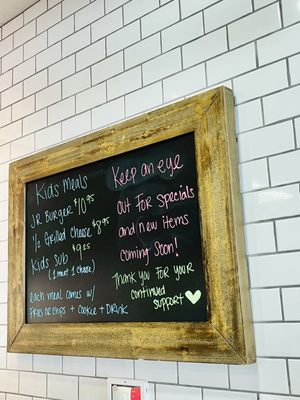 Kids Meals
JR Burger $10.95
1/2 Grilled Cheese $8.95
Kids Sub $9.25
(1 meat 1 cheese)
each meal comes w/
Fries or chips + Cookie + Drink
Keep an eye
out For specials
and new items
Coming soon!
Thank you For your
continued
support